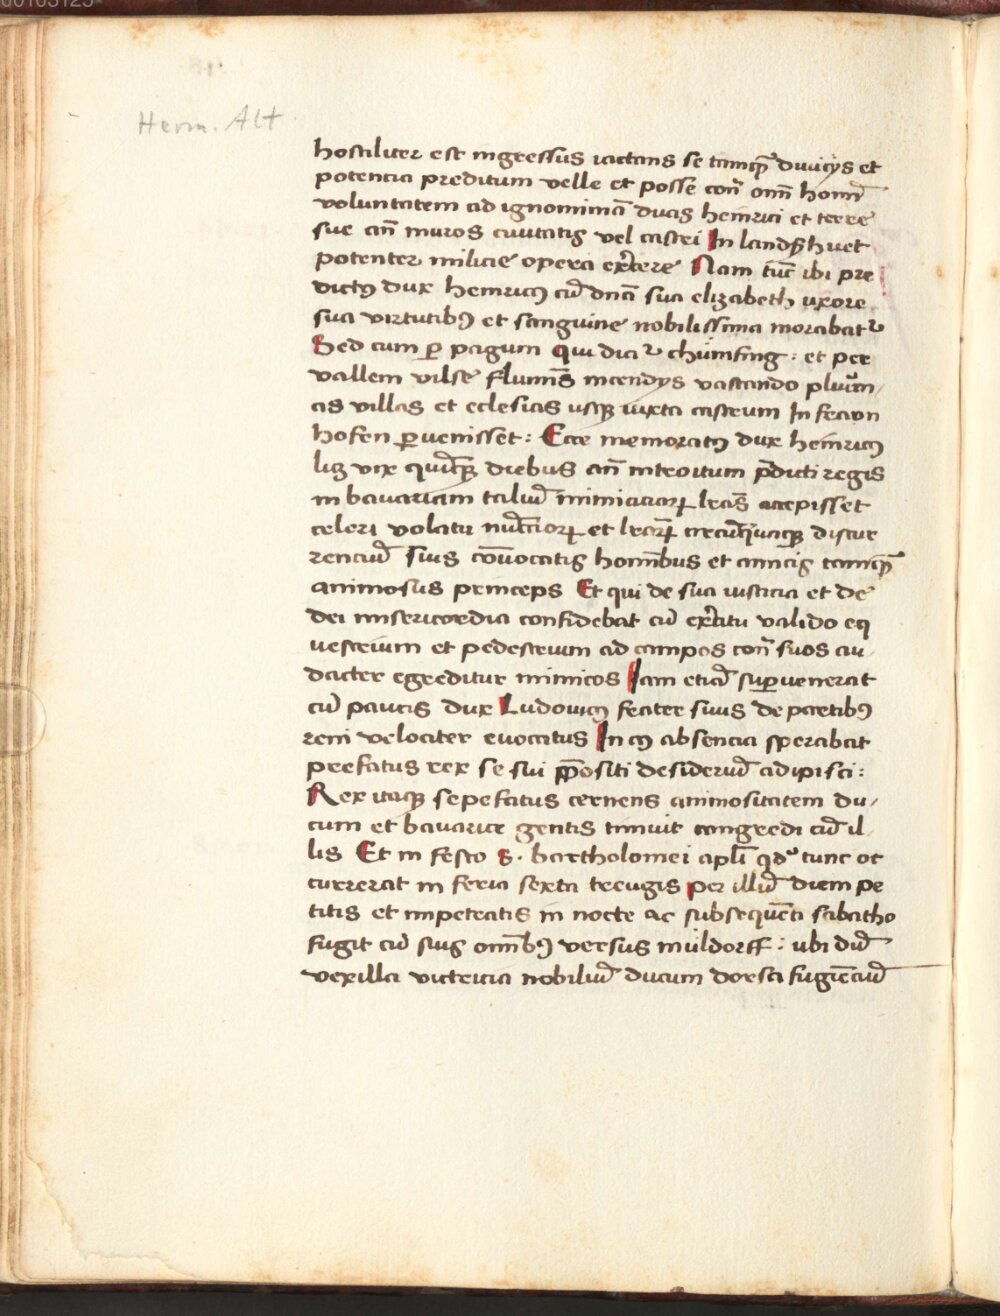 00103125
Herm. Alt
hostiliter est ingressus iactans se tamq̄ȝ diuicijs et
potencia preditum velle et posse cont̄ om̄ hom̄
voluntatem ad ignominiā ducis heinrici et terre
sue an̄ muros ciuitatis vel castri In landßhuet
potenter milicie opera ex̄cere Nam tūc ibi pre
dictꝰ dux heinricꝰ cū dn̄a sua elizabeth uxore
sua virtutibꝰ et sanguine nobilissima morabatᷣ
Sed cum ꝑ pagum qui diciᷣ chümsing : et per
vallem vilse flumīs incendijs vastando plurim
as villas et eclesias usqȝ iuxta castrum In fraon
hofen ꝑuenisset : Ecce memoratꝰ dux heinricꝰ
licȝ vix quīdeȝ diebus an̄ introitum p̄dicti regis
in bauariam taliū inimiciciaꝝ lr̄as accepisset
celeri volatu nūccioꝝ et lr̄aꝝ circūq̄uaqȝ discur
renciū suis cōuocatis hominibus et amicis tamq̄ȝ
animosus princeps Et qui de sua iusticia et de
dei misericordia confidebat cū ex̄citu valido eq
uestrium et pedestrium ad campos cont̄ suos au
dacter egreditur inimicos Iam etiā suꝑuenerat
cū paucis dux Ludouicꝰ frater suus de partibꝰ
reni velociter euocatus In cꝰ absencia sperabat
prefatus rex se sui ꝓpositi desideriū adipisci :
Rex itaqȝ sepefatus cernens animositatem du/
cum et bauarice gentis timuit congredi cū il
lis Et in festo S. bartholomei apl̄i qd' tunc oc
currerat in feria sexta treugis per illū diem pe
titis et impetratis in nocte ac subsequēti sabatho
fugit cū suis omnibꝰ versus müldorff : ubi dū
vexilla victricia nobiliū ducum dorsa fugiēciū